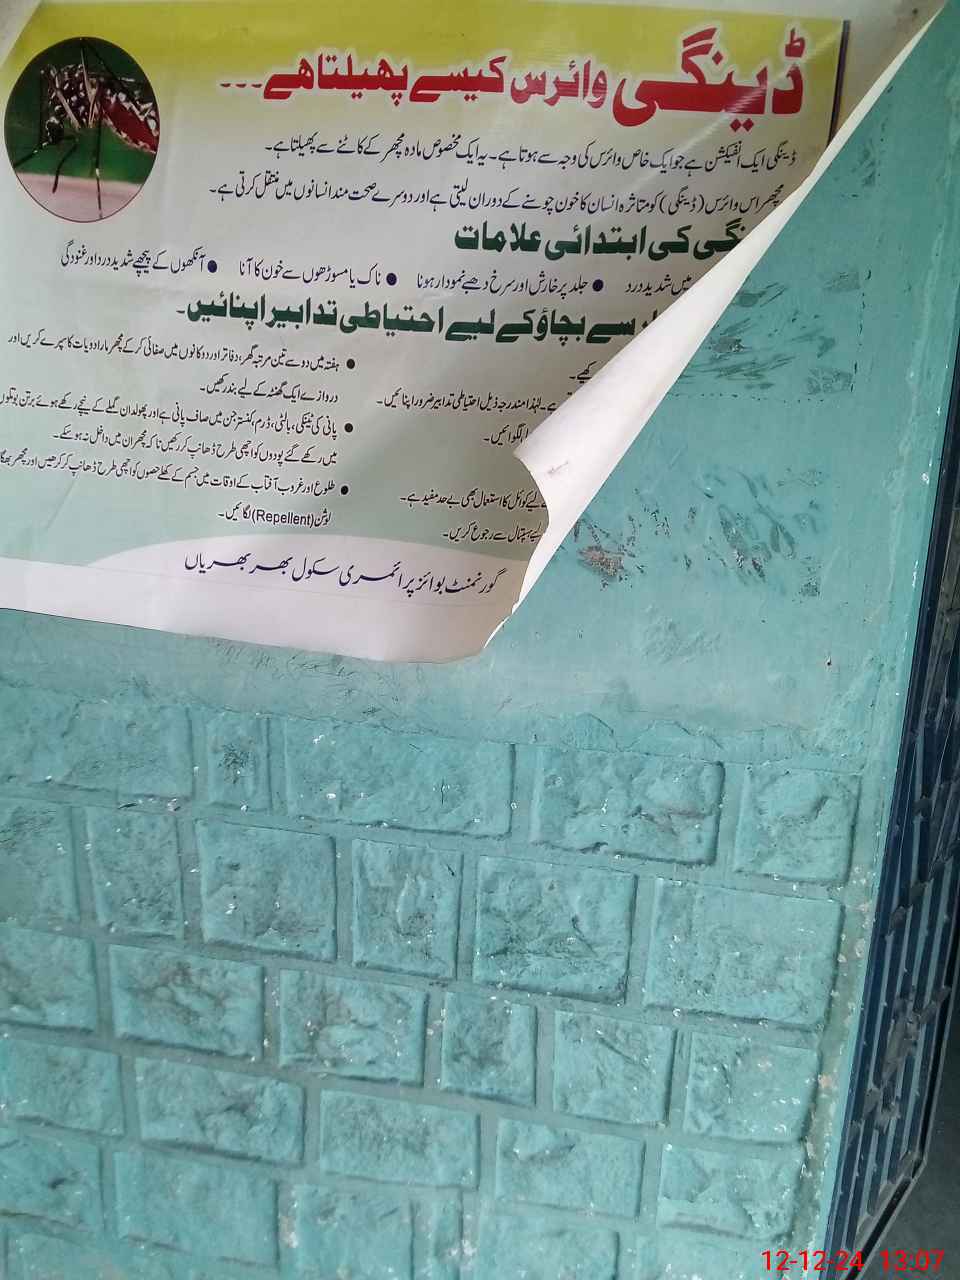 ڈینگی وائرس کیسے پھیلتا ہے...
ڈینگی ایک انفیکشن ہے جو ایک خاص وائرس کی وجہ سے ہوتا ہے۔ یہ ایک مخصوص مادہ مچھر کے کاٹنے سے پھیلتا ہے۔
مچھر اس وائرس (ڈینگی) کو متاثرہ انسان کا خون چوسنے کے دوران لیتی ہے اور دوسرے صحت مند انسانوں میں منتقل کرتی ہے۔
نگی کی ابتدائی علامات
میں شدید درد ● جلد پر خارش اور سرخ دھبے نمودار ہونا ● ناک یا مسوڑھوں سے خون کا آنا ● آنکھوں کے پیچھے شدید درد اور غنودگی
سے بچاؤ کے لیے احتیاطی تدابیر اپنائیں۔
رکھیے۔
ہے۔ لہٰذا مندرجہ ذیل احتیاطی تدابیر ضرور اپنائیں۔
لگوائیں۔
لیے کوائل کا استعمال بھی بے حد مفید ہے۔
ہسپتال سے رجوع کریں۔
● ہفتہ میں دو سے تین مرتبہ گھر، دفاتر اور دوکانوں میں صفائی کر کے مچھر مار ادویات کا سپرے کریں اور
دروازے ایک گھنٹہ کے لیے بند رکھیں۔
● پانی کی ٹینکی، بالٹی، ڈرم، کنستر جن میں صاف پانی ہے اور پھولدان گملے کے نیچے رکھے ہوئے برتن بوتلوں
میں رکھے گئے پودوں کو اچھی طرح ڈھانپ کر رکھیں تاکہ مچھر ان میں داخل نہ ہو سکے۔
● طلوع اور غروب آفتاب کے اوقات میں جسم کے کھلے حصوں کو اچھی طرح ڈھانپ کر رکھیں اور مچھر بھگا
لوشن (Repellent) لگائیں۔
گورنمنٹ بوائز پرائمری سکول بھر بھریاں
12-12-24 13:07